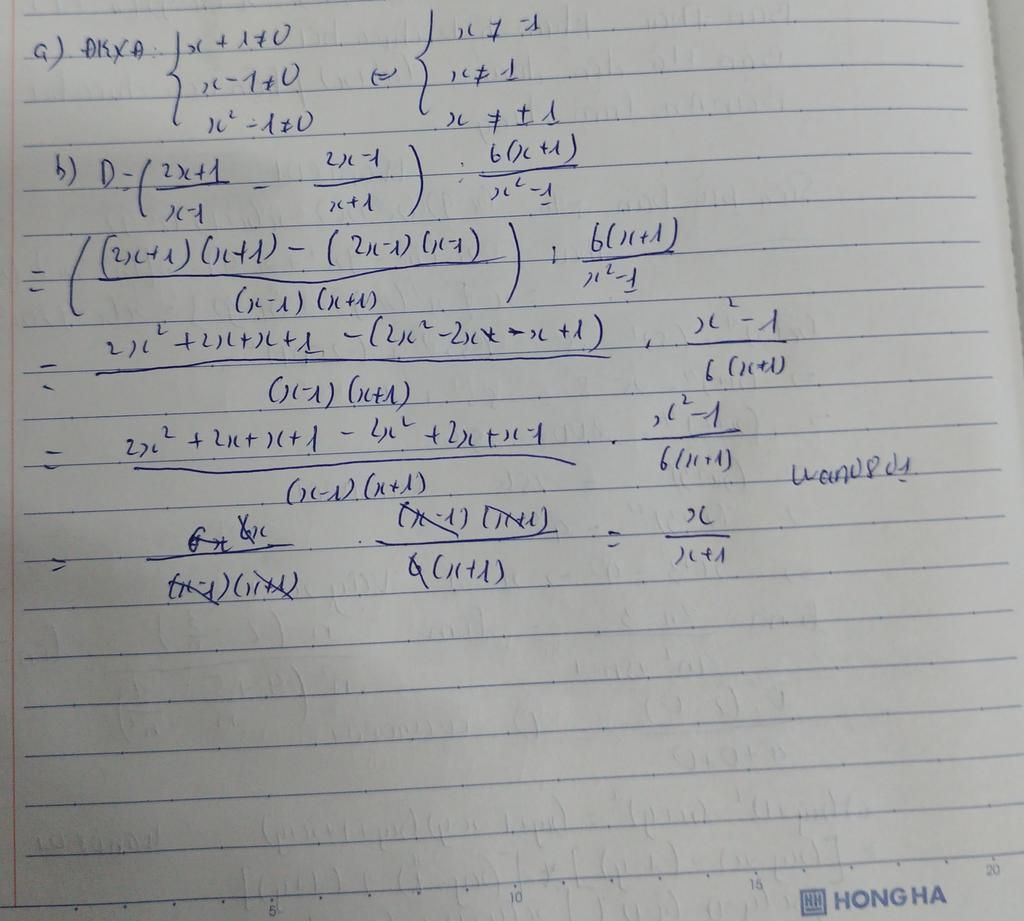 a) ĐKXĐ: { x + 1 ≠ 0 ⇔ { x ≠ -1
x - 1 ≠ 0 x ≠ 1
x² - 1 ≠ 0 x ≠ ± 1
b) D = ( (2x+1)/(x-1) - (2x-1)/(x+1) ) : 6(x+1)/(x²-1)
= ( ((2x+1)(x+1) - (2x-1)(x-1))/((x-1)(x+1)) ) : 6(x+1)/(x²-1)
= (2x² + 2x + x + 1 - (2x² - 2x - x + 1))/((x-1)(x+1)) . (x² - 1)/(6(x+1))
= (2x² + 2x + x + 1 - 2x² + 2x + x - 1)/((x-1)(x+1)) . (x² - 1)/(6(x+1))
= 6x/((x-1)(x+1)) . ((x-1)(x+1))/(6(x+1)) = x/(x+1)
5 10 15 20
HH HONG HA